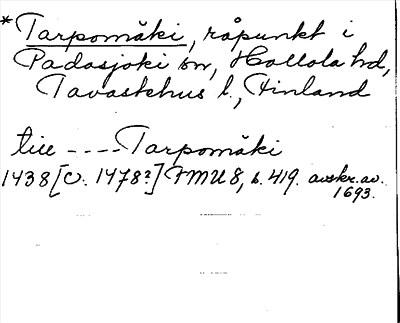 *Tarpomäki, råpunkt i
Padasjoki sn, Hollola hd,
Tavastehus l., Finland
till ---- Tarpomäki
1438 [o. 1478?] FMU 8, s. 419. avskr. av
1693.